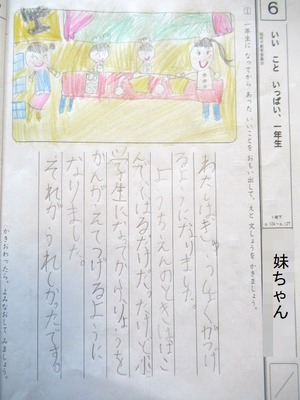 6
いい こと いっぱい、一年生
1年下
p.124～p.127
妹ちゃん
① 一年生に なってから あった いいことを おもい出して、えと 文しょうを かきましょう。
わたしは、きゅうしょくがつげ
るようになりました。
ようちえんのときははこ
んでくばるだけだったけど小
学生になってからりょうを
かんがえてつげるように
なりました。
それがうれしかったです。
かきおわったら、よみなおして みましょう。